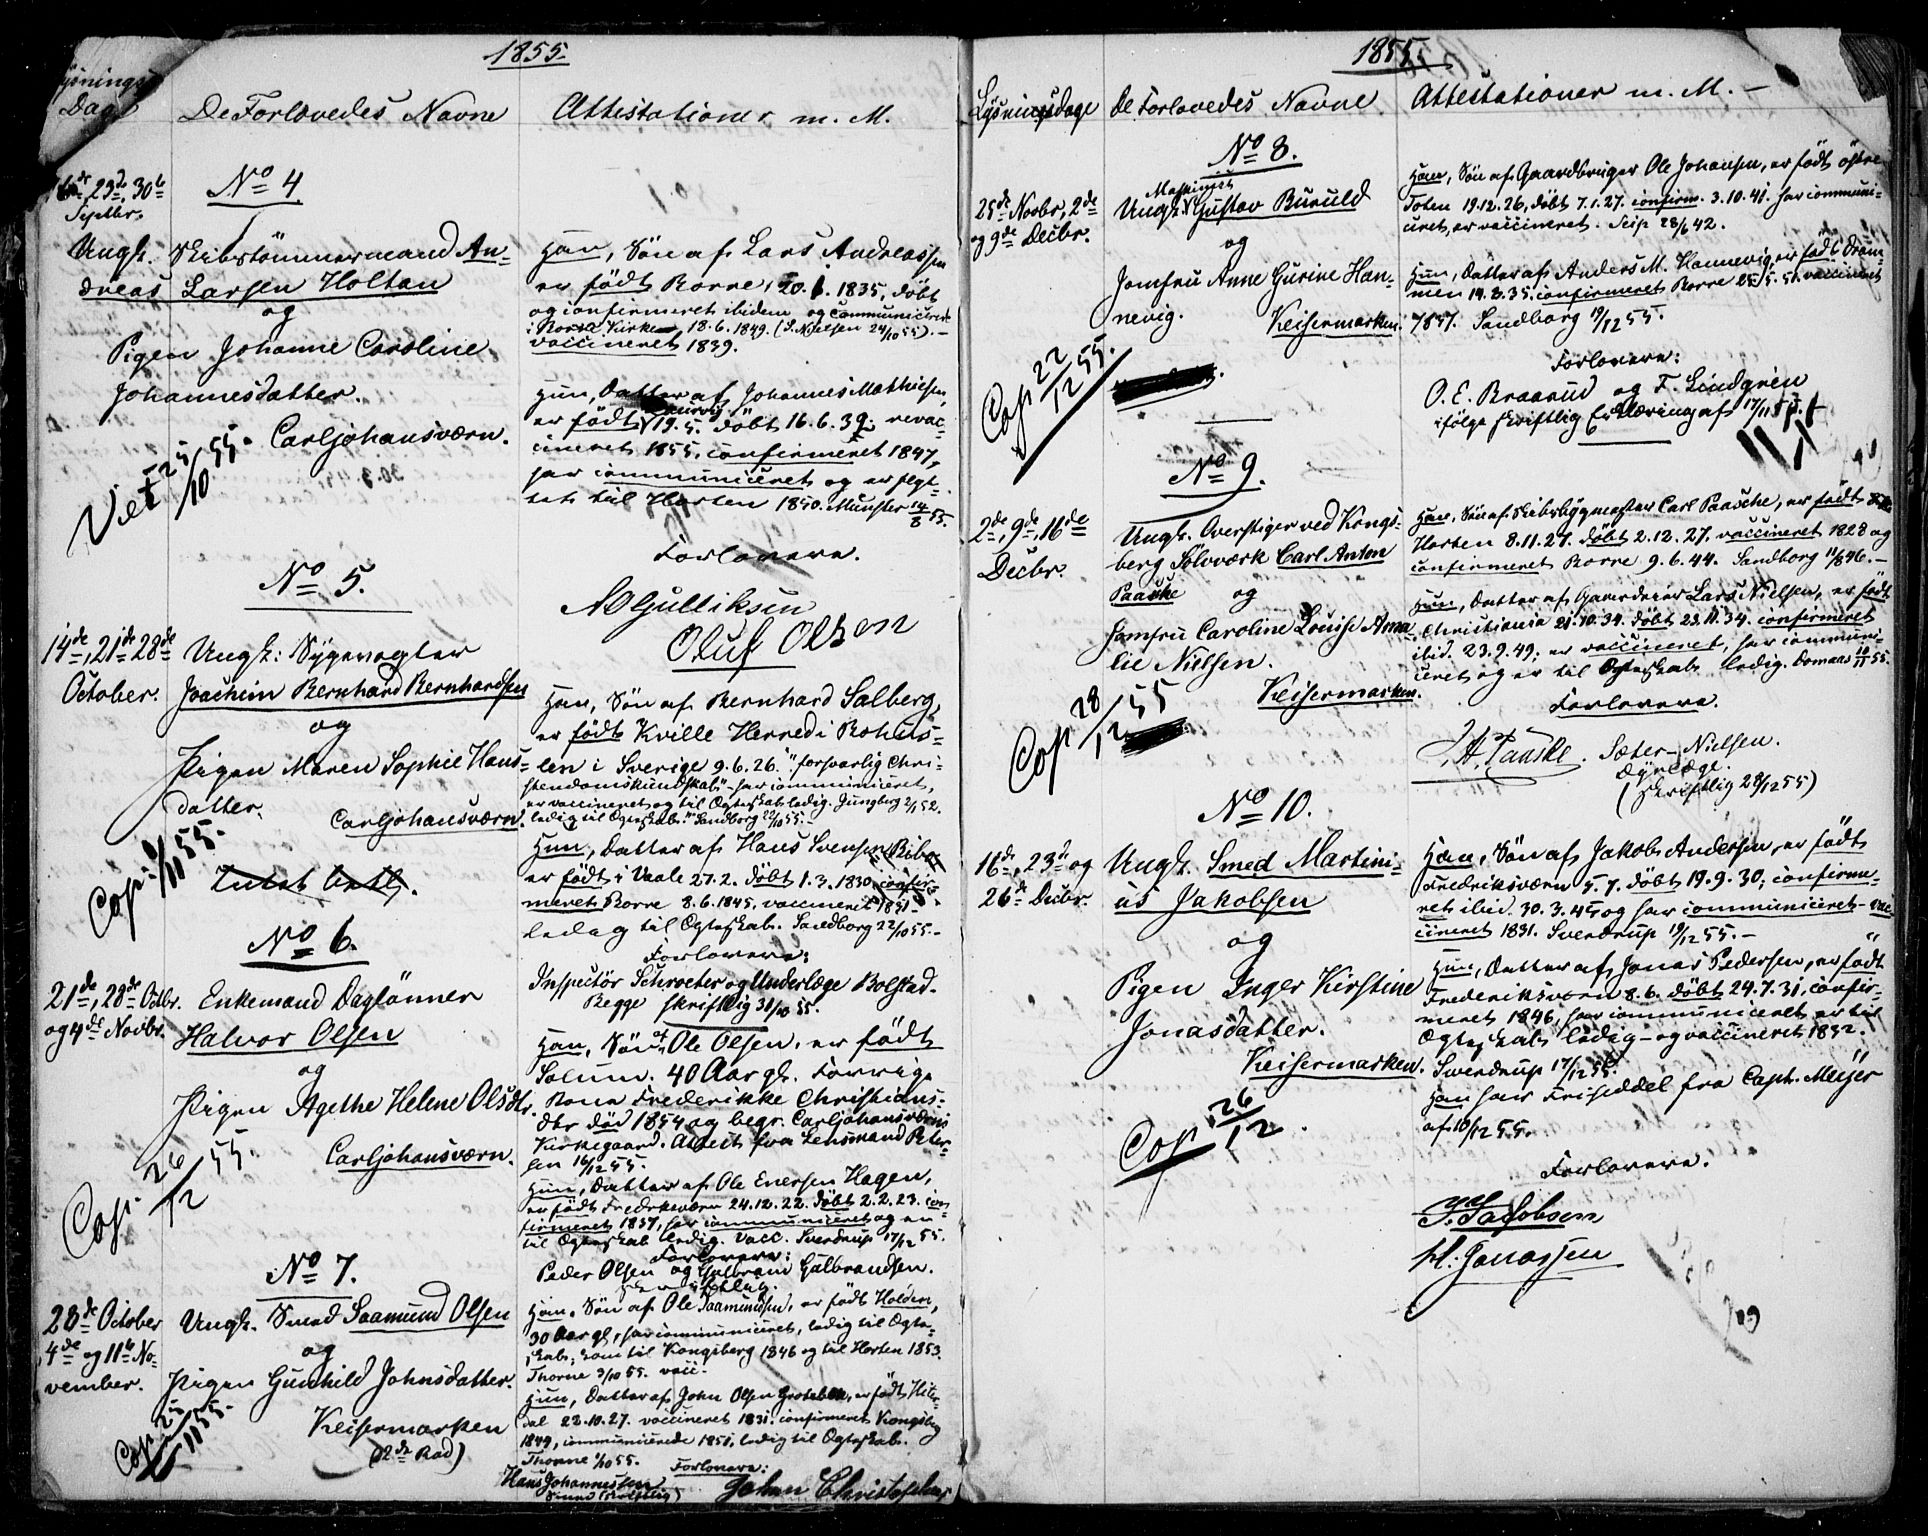 1855.
Lysnings
Dage
De Forlovedes Navne
Attestationer m. M.
16de, 23de, 30te
Septbr.
No 4
Ungk. Skibstömmermand An-
dreas Larsen Holtan
og
Pigen Johanne Caroline
Johannesdatter.
Carljohansværn.
Viet 25/10 55.
Han, Søn af Lars Andreassen
er født Borre, 20. 1. 1835, døbt
og confirmeret ibidem og communiceret
i Borre Kirke, 18.6.1849. (S. Nielsen 24/10 55). -
vaccineret 1839.
Hun, Datter af Johannes Mathiesen,
er født Laurvig 19.5. døbt 16.6.39. revac-
cineret 1855, confirmeret 1847,
har communiceret og er flyt-
tet til Horten 1850. Munster 14/8 55.
Forlovere.
A Gulliksen
Oluf Olsen
No 5.
14de, 21de 28de
October.
Ungk: Sygevogter
Joachim Bernhard Bernhardsen
og
Pigen Maren Sophie Hans-
datter.
Carljohansværn.
Cop. /11 55.
Han, Søn af Bernhard Salberg,
er født Kville Herred i Bohus-
len i Sverige 9.6.26. "forsvarlig Chri-
stendomskundskab" - har communiceret,
er vaccineret og til Ogteskab ledig. Jungberg 2/1 52.
ledig til Ogteskab. Sandborg 22/10 55. -
Hun, Datter af Hans Svensen
er født i Vaale 27.2. døbt 1.3.1830, confir-
meret Borre 8.6.1845, vaccineret 1831 -
ledig til Ogteskab. Sandborg 22/10 55. -
Forlovere:
Inspectör Schroeter og Underlæge Bolstad.
Begge skriftlig 31/10 55.
No 6.
21de, 28de Octbr.
og 4de Novbr.
Enkemand Dagtönner
Halvor Olsen
og
Pigen Agethe Helene Olsdtr.
Carljohansværn.
Cop. 26/12 55.
Han, Søn af Ole Olsen, er født
Solum. 40 Aar gl. Forrige
Kone Frederikke Christians-
dtr død 1854 og begr. Carljohansværns
Kirkegaard. Attest fra Lensmand Peter-
sen 16/12 55.
Hun, Datter af Ole Enersen Hagen,
er født Fredrksværn 24.12.22. døbt 2.2.23. con-
firmeret 1837, har communiceret og er
til Ogteskab ledig. Vacc. Sverdrup 17/12 55.
Forlovere:
Peder Olsen og Gulbrand Gulbrandsen.
skriftlig.
No 7.
28de October
4de og 11te No-
vember.
Ungk. Smed Saamund Olsen
og
Pigen Gunhild Johnsdatter.
Keisermarken
(2de Rad)
Cop 25/11 55.
Han, Søn af Ole Saamundsen, er født Holden,
30 Aar gl, har communiceret, ledig til Ogte-
skab; kom til Kongsberg 1846 og til Horten 1853.
Thorne 3/10 55. vacc.
Hun, Datter af John Olsen Grotebek, er født Hit-
dal 22.10.27. vaccineret 1831. confirmeret Kongsberg
1849, communicerede 1851, ledig til Ogteskab.
Thorne 1/10 55. Forlovere:
Hans Johannessen
Smed (skriftlig)
John Christophersen
1855.
Lysningsdage
De Forlovedes Navne
Attestationer m. M. -
No 8.
25de Novbr, 2de
og 9de Decbr.
Maskinist
Ungk. Gustav Buruld
og
Jomfru Anne Gurine Han-
nevig.
Keisermarken.
Cop 22/12 55.
Han, Søn af Gaardbruger Ole Johansen, er født östre
Toten 19.12.26, døbt 7.1.27. confirm. 3.10.41. har communi-
ceret, er vaccineret. Seip 28/6 42.
Hun, Datter af Anders M. Hannevig, er født Dram-
men 14.8.35. confirmeret Borre 25/5. 51. vaccineret
1837. Sandborg 19/12 55.
Forlovere:
O. E. Braarud og F. Lindgren
ifölge skriftlig Erklæring af 17/11 55.
No 9.
2de, 9de, 16de
Decbr.
Ungk. Overstiger ved Kongs-
berg Sølvværk Carl Anton
Paaske og
Jomfru Caroline Louise Ama-
lie Nielsen.
Keisermarken.
Cop 28/12 55
Han, Søn af Skibsbygmester Carl Paasche, er født
Horten 8.11.27. døbt 2.12.27. vaccineret 1828 og
confirmeret Borre 9.6.44. Sandborg 11/8 46. -
Hun, Datter af Gaardeier Lars Nielsen, er født
Christiania 21.10.34. døbt 23.11.34. confirmeret
ibid. 23.9.49; er vaccineret, har communi-
ceret og er til Ogteskab ledig. Domaas 10/11 55.
Forlovere.
J. A. Paaske. Sæter-Nielsen.
Dyrlæge.
(Skriftlig 28/12 55)
No 10.
16de, 23de og
26de Decbr.
Ungk. Smed Martini-
us Jakobsen
og
Pigen Inger Kirstine
Jonasdatter.
Keisermarken.
Cop 26/12.
Han, Søn af Jakob Andersen, er født
Fredriksværn 5.7. døbt 19.9.30; confirme-
ret ibid. 30.3.45 og har communiceret - vac-
cineret 1831. Sverdrup 19/12 55. -
Hun, Datter af Jonas Pedersen, er født
Frederiksværn 8.6. døbt 24.7.31, confir-
meret 1846, har communiceret er til
Ogteskab ledig - og vaccineret 1832.
Sverdrup 17/12 55.
Han har Friseddel fra Capt. Meijer
af 10/12 55.
Forlovere.
Jakobsen
H. Jonassen